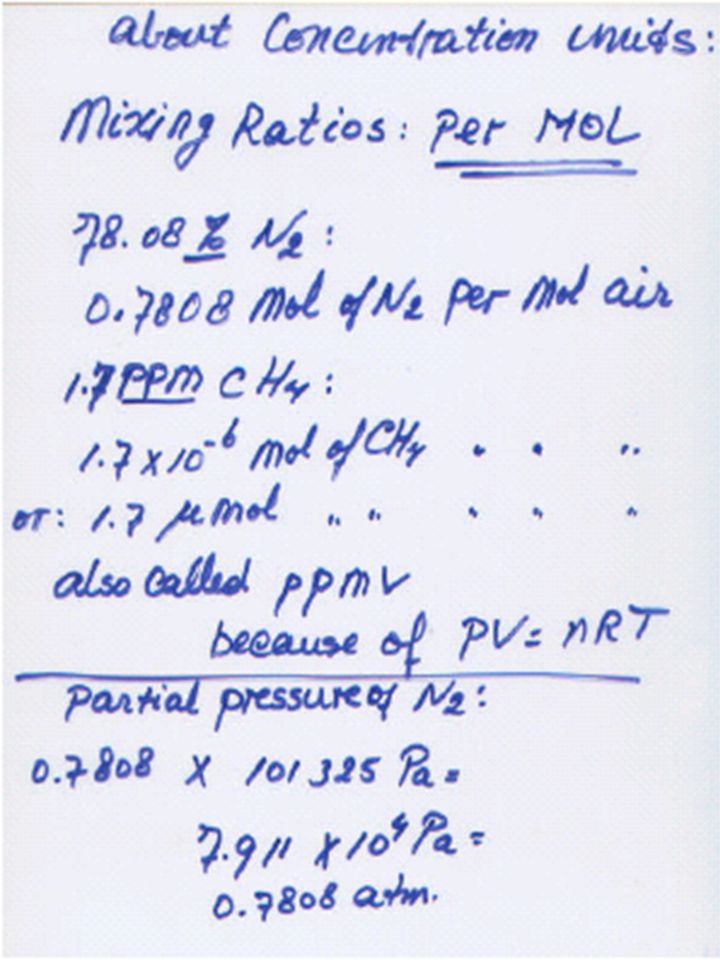 about Concentration units:
Mixing Ratios: per MOL
78.08 % N₂:
0.7808 mol of N₂ per mol air
1.7 ppm CH₄:
1.7 x 10⁻⁶ mol of CH₄ " " "
or: 1.7 μmol " " " " "
also called ppmv
because of PV = nRT
Partial pressure of N₂:
0.7808 X 101325 Pa =
7.911 x 10⁴ Pa =
0.7808 atm.